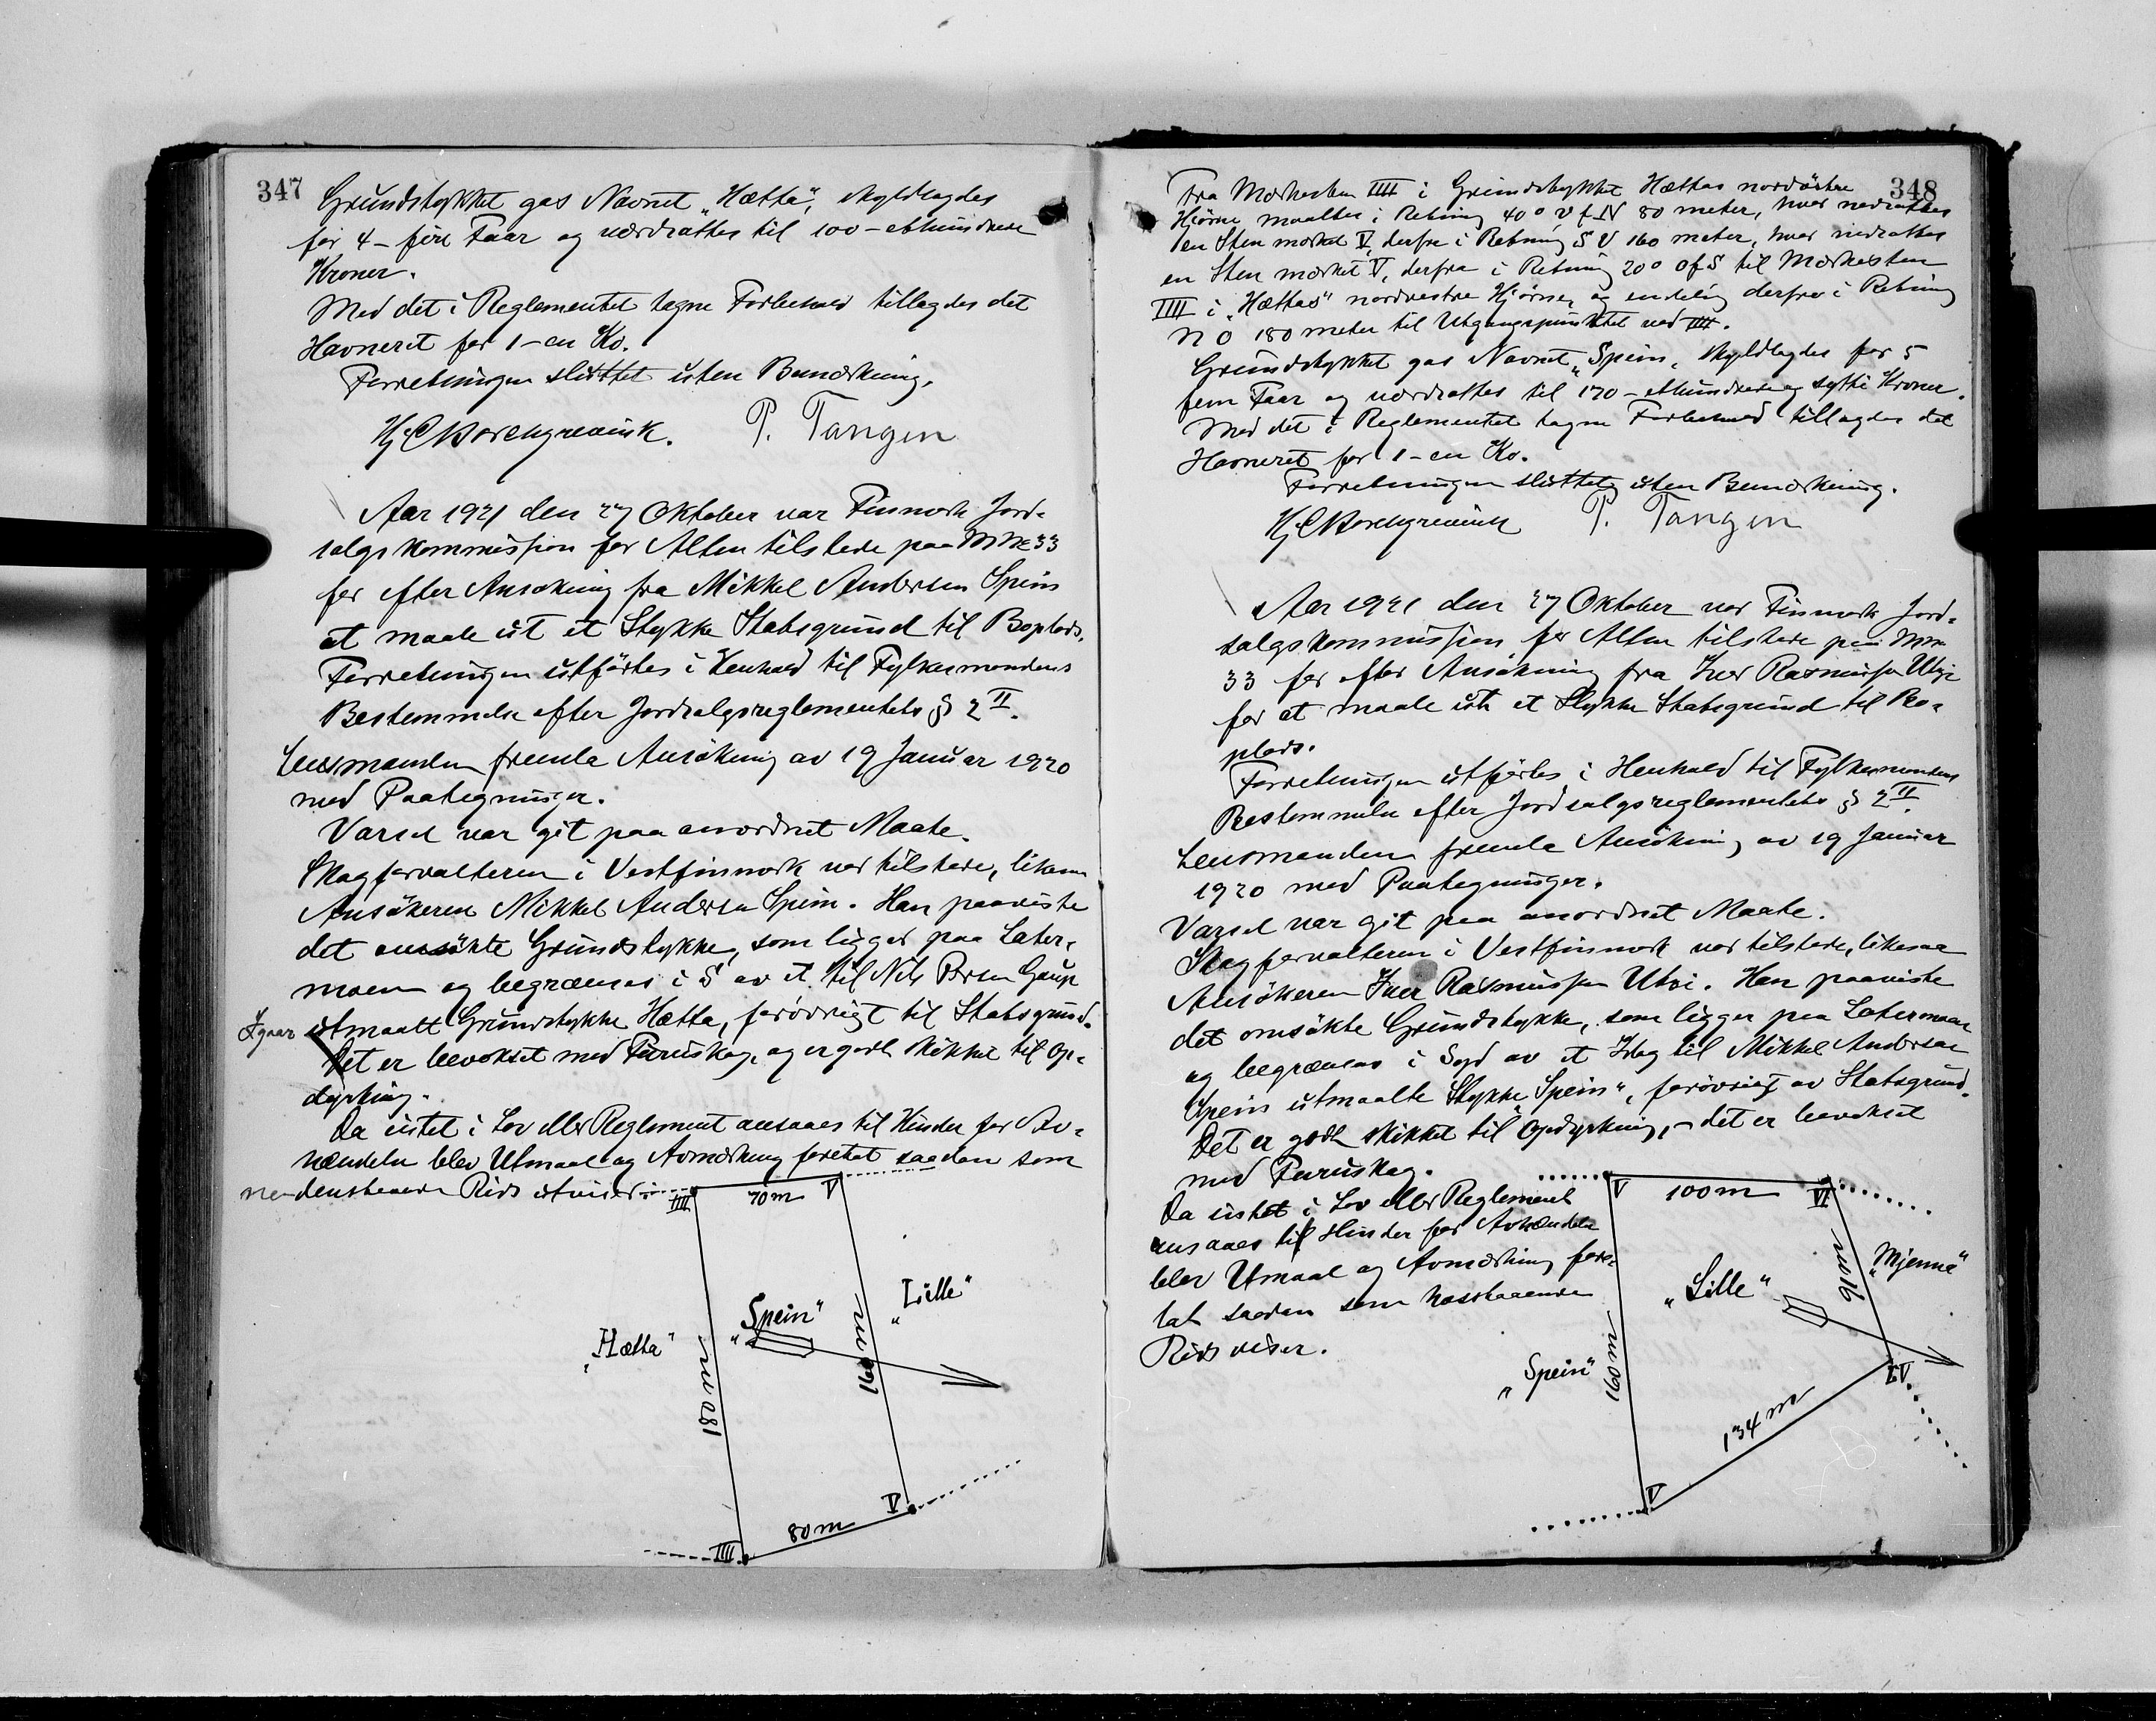 347
Grundstykket gas Navnet „Hætta“, skyldlagdes
for 4 - fire Faar og værdsattes til 100 - ethundrede
Kroner.
Med det i Reglementet tagne Forbehold tillagdes det
Havneret for 1 - en Ko.
Forretningen sluttet uten Bemærkning.
Hj C Borchgrevink. P. Tangen
Aar 1921 den 27 Oktober var Finmark Jord-
salgskommission for Alten tilstede paa 33
for efter Ansökning fra Mikkel Andersen Spein
at maale ut et Stykke Statsgrund til Boplads.
Forretningen utförtes i Henhold til Fylkesmandens
Bestemmelse efter Jordsalgsreglementets § 2 II.
Lensmanden fremla Ansökning av 19 Januar 1920
med Paategninger.
Varsel var git paa anordnet Maate.
Skogforvalteren i Vestfinmark var tilstede, likesaa
Ansökeren Mikkel Andersen Spein. Han paaviste
det ansökte Grundstykke, som ligger paa Later-
moen og begrænses i S av et til Nils Persen Gaup
Igaar utmaalt Grundstykke Hætta, forövrigt til Statsgrund.
Det er bevokset med Furuskog, og er godt skikket til Op-
dyrking.
Da intet i Lov eller Reglement ansaaes til Hinder for Av-
hændelse blev Utmaal og Avmærkning foretat saadan som
nedenstaaende Rids utviser:
IIII 70 m V
„Hætta“ 180 m „Spein“ 160 m „Lille“
IIII 80 m V
348
Fra Merkesten IIII i Grundstykket Hættas nordöstre
Hjörne maaltes i Retning 40° V f N 80 meter, hvor nedsattes
en Sten merket V, derfra i Retning S V 160 meter, hvor nedsattes
en Sten merket V, derfra i Retning 20° O f S til Merkesten
IIII i „Hættas“ nordvestre Hjörne, og endelig derfra i Retning
N O 180 meter til Utgangspunktet ved IIII.
Grundstykket gas Navnet „Spein“, skyldlagdes for 5
fem Faar og værdsattes til 170 - ethundrede og sytti Kroner.
Med det i Reglementet tagne Forbehold tillagdes det
Havneret for 1 - en Ko.
Forretningen sluttet uten Bemærkning.
Hj C Borchgrevink P. Tangen
Aar 1921 den 27 Oktober var Finmark Jord-
salgskommission for Alten tilstede paa
33 for efter Ansökning fra Iver Rasmussen Utsi
for at maale ut et Stykke Statsgrund til Bo-
plads.
Forretningen utförtes i Henhold til Fylkesmandens
Bestemmelse efter Jordsalgsreglementets § 2 II.
Lensmanden fremla Ansökning av 19 Januar
1920 med Paategninger.
Varsel var git paa anordnet Maate.
Skogforvalteren i Vestfinmark var tilstede, likesaa
Ansökeren Iver Rasmussen Utsi. Han paaviste
det ansökte Grundstykke, som ligger paa Latermoen
og begrænses i Syd av et Idag til Mikkel Andersen
Spein utmaalte Stykke „Spein“, forövrigt av Statsgrund.
Det er godt skikket til Opdyrkning, - det er bevokset
med Furuskog.
Da intet i Lov eller Reglement
ansaaes til Hinder for Avhændelse
blev Utmaal og Avmærkning fore-
tat saadan som hosstaaende
Rids viser.
V 100 m VI
„Spein“ 160 m „Lille“ 91 m „Mjenna“
134 m IV
V